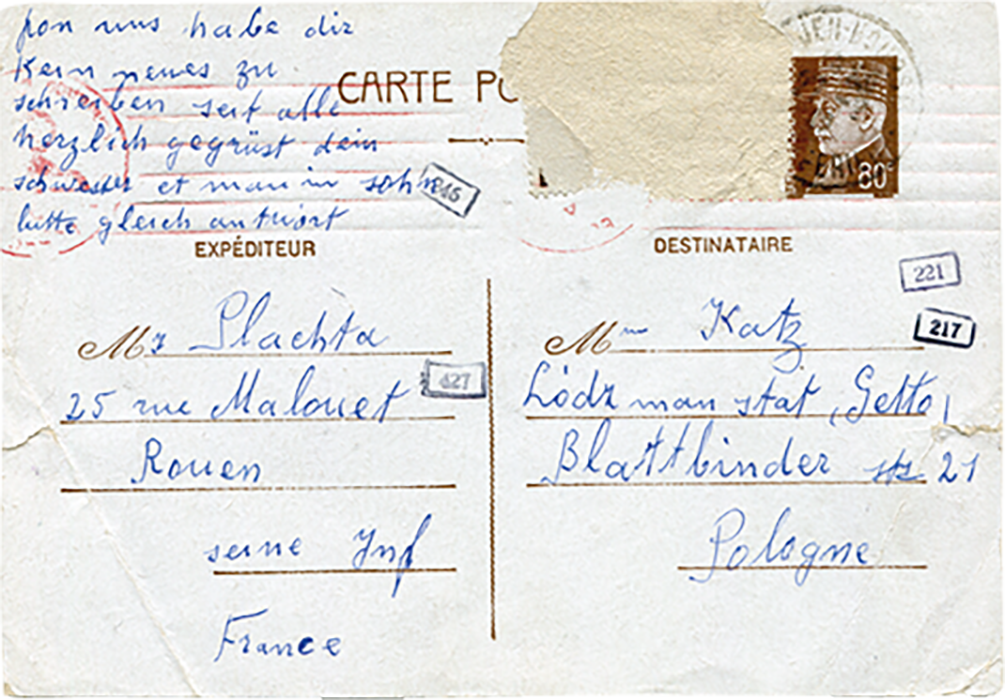 fon uns habe dir
Kein neues zu
schreiben seit alle
herzlich gegrüst dein
schwester et man in sohn
bitte gleich antwort
CARTE
80
EXPÉDITEUR
DESTINATAIRE
221
217
427
Mr Plachta
25 rue Malouet
Rouen
seine Inf
France
Mme Katz
Lódz man stat (Getto)
Blattbinder str 21
Pologne